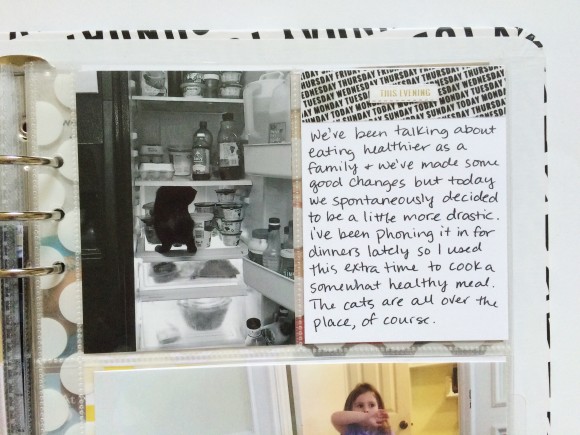 THIS EVENING
We've been talking about
eating healthier as a
family + we've made some
good changes but today
we spontaneously decided
to be a little more drastic.
i've been phoning it in for
dinners lately so I used
this extra time to cook a
somewhat healthy meal.
The cats are all over the
place, of course.